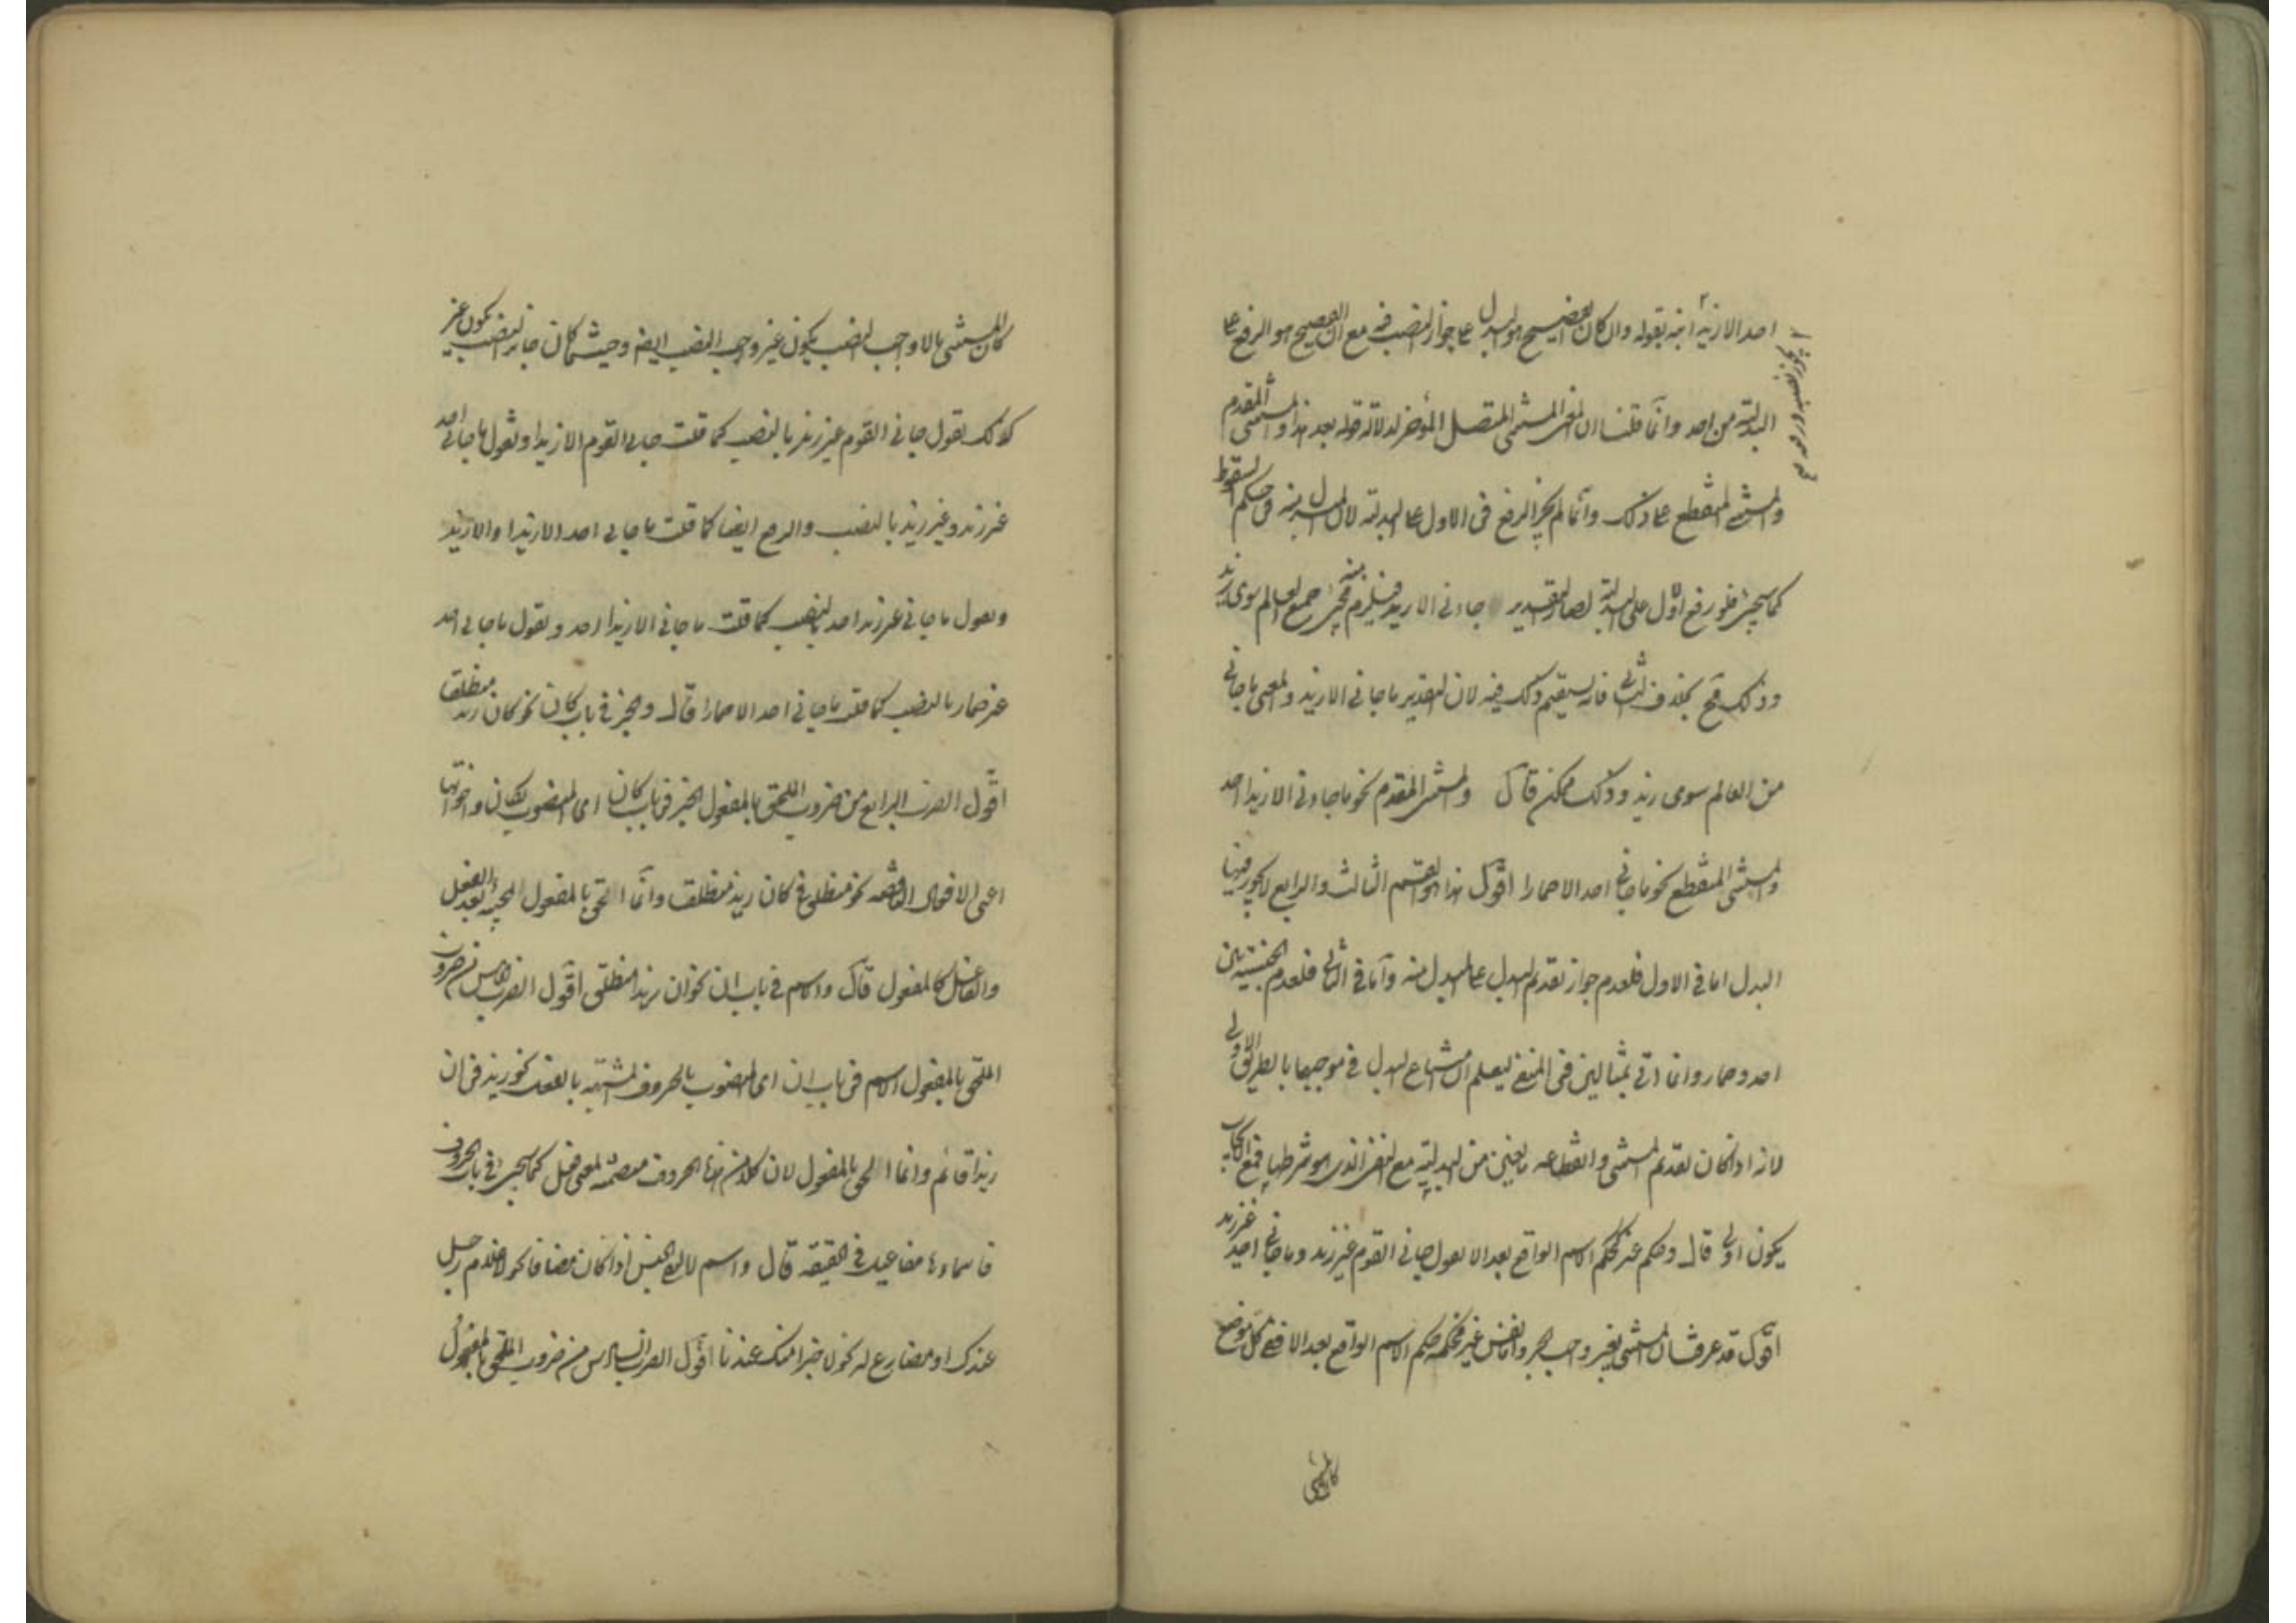 احد الا زید انه بقوله وان کان الفصیح هو البدل علی جواز النصب فیه مع ان الفصیح هو الرفع علی
البدلیة من احد وانما قلنا ان المستثنی المتصل المؤخر لدلالة قوله بعد هذا والمستثنی المقدم
والمستثنی المنقطع علی ذلک وانما لم یجز الرفع فی الاول علی البدلیة لان المبدل منه فی حکم السقوط
کما سیجئ فلو رفع الاول علی البدلیة لصار التقدیر جاءنی الا زید فیلزم منه مجئ جمیع العالم سوی زید
وذلک قبیح بخلاف الثانی فانه یستقیم ذلک فیه لان التقدیر ما جانی الا زید والمعنی ما جانی
من العالم سوی زید وذلک ممکن قال والمستثنی المقدم نحو ما جاءنی الا زیدا احد
والمستثنی المنقطع نحو ما جانی احد الا حمارا اقول هذا هو القسم الثالث والرابع لا یجوز فیهما
البدل اما فی الاول فلعدم جواز تقدیم البدل علی المبدل منه واما فی الثانی فلعدم الجنسیة بین
احد وحمار وانما اتی بمثالین فی المنفی لیعلم ان امتناع البدل فی موجبهما بالطریق الاولی
لانه اذا کان تقدیم المستثنی وانقطاعه مانعین من البدلیة مع النفی الذی هو شرطها فمع الایجاب
یکون اولی قال وحکم غیر کحکم الاسم الواقع بعد الا تقول جانی القوم غیر زید وما جانی احد غیر زید
اقول قد عرفت ان المستثنی بغیر واجب الجر واما نفس غیر فحکمه حکم الاسم الواقع بعد الا ففی کل موضع
کان المستثنی
کان المستثنی بالا واجب النصب یکون غیر واجب النصب ایضا وحیث کان جائز النصب یکون غیر
کذلک تقول جانی القوم غیر زید بالنصب کما قلت جانی القوم الا زیدا وتقول ما جانی احد
غیر زید وغیر زید بالنصب والرفع ایضا کما قلت ما جانی احد الا زیدا والا زید
وتقول ما جانی غیر زید احد بالنصب کما قلت ما جانی الا زیدا احد وتقول ما جانی احد
غیر حمار بالنصب کما قلت ما جانی احد الا حمارا قال والخبر فی باب کان نحو کان زید منطلقا
اقول الضرب الرابع من ضروب الملحق بالمفعول الخبر فی باب کان ای المنصوب بکان واخواتها
اعنی الافعال الناقصة نحو منطلق فی کان زید منطلقا وانما الحق بالمفعول لمجیئه بعد الفعل
والفاعل کالمفعول قال والاسم فی باب ان نحو ان زیدا منطلق اقول الضرب الخامس من ضروب
الملحق بالمفعول الاسم فی باب ان ای المنصوب بالحروف المشبهة بالفعل نحو زید فی ان
زیدا قائم وانما الحق بالمفعول لان کلا من هذه الحروف متضمنة لمعنی فعل کما سیجئ فی باب الحروف
فاسماوها مفاعیل فی الحقیقة قال واسم لا لنفی الجنس اذا کان مضافا نحو لا غلام رجل
عندک او مضارع له نحو لا خیرا منک عندنا اقول الضرب السادس من ضروب الملحق بالمفعول